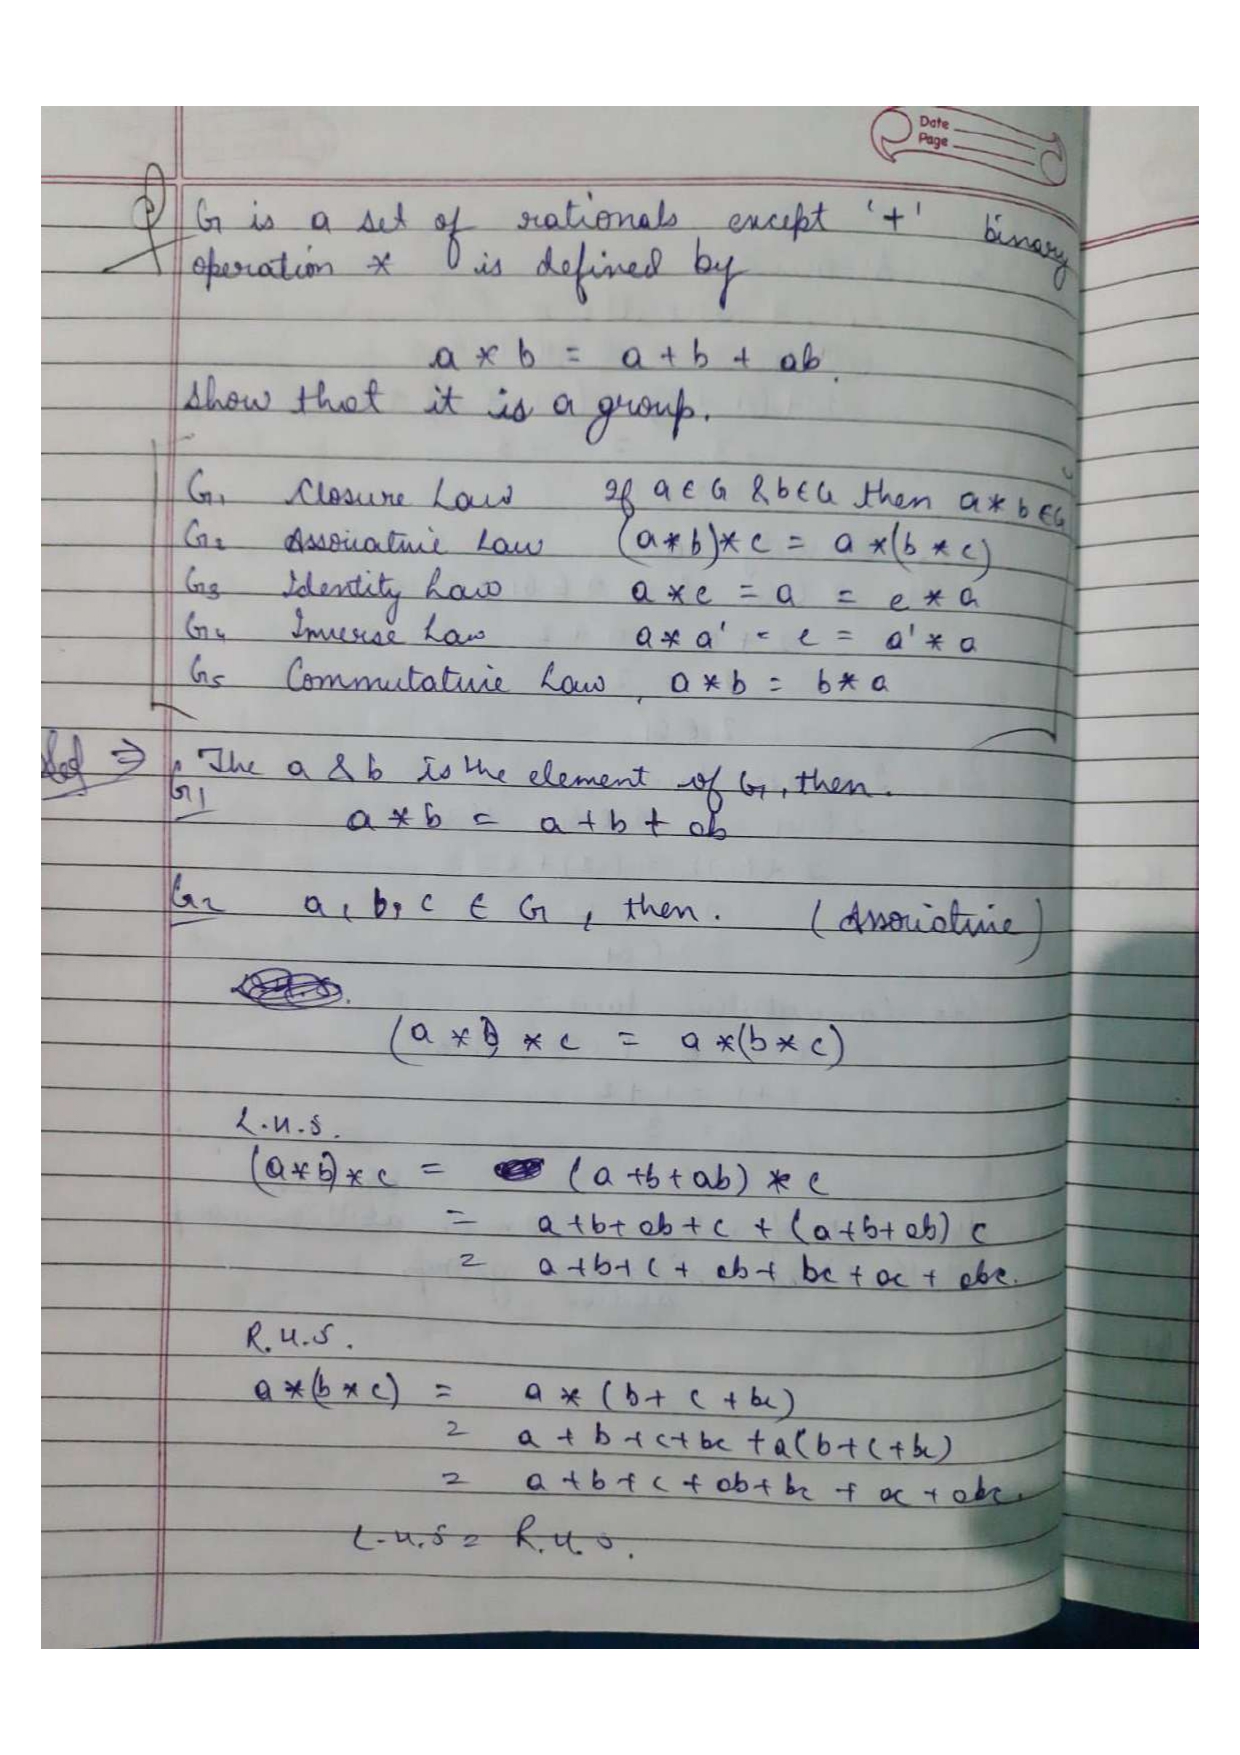 Date
Page
Q G is a set of rationals except '+' binary
operation * is defined by
a * b = a + b + ab.
Show that it is a group.
G1 Closure Law If a ∈ G & b ∈ G then a * b ∈ G
G2 Associative Law (a * b) * c = a * (b * c)
G3 Identity Law a * e = a = e * a
G4 Inverse Law a * a' = e = a' * a
G5 Commutative Law, a * b = b * a
Sol ⇒ The a & b is the element of G, then.
G1
a * b = a + b + ab
G2 a, b, c ∈ G, then. (Associative)
(a * b) * c = a * (b * c)
L.H.S.
(a * b) * c = (a + b + ab) * c
= a + b + ab + c + (a + b + ab) c
= a + b + c + ab + bc + ac + abc.
R.H.S.
a * (b * c) = a * (b + c + bc)
= a + b + c + bc + a(b + c + bc)
= a + b + c + ab + bc + ac + abc.
L.H.S = R.H.S.